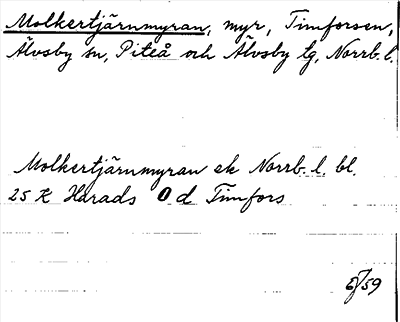 Molkertjärnmyran, myr, Timforsen,
Älvsby sn, Piteå och Älvsby tg, Norrb. l.
Molkertjärnmyran ek Norrb. l. bl.
25 K Harads O d Timfors
E/59